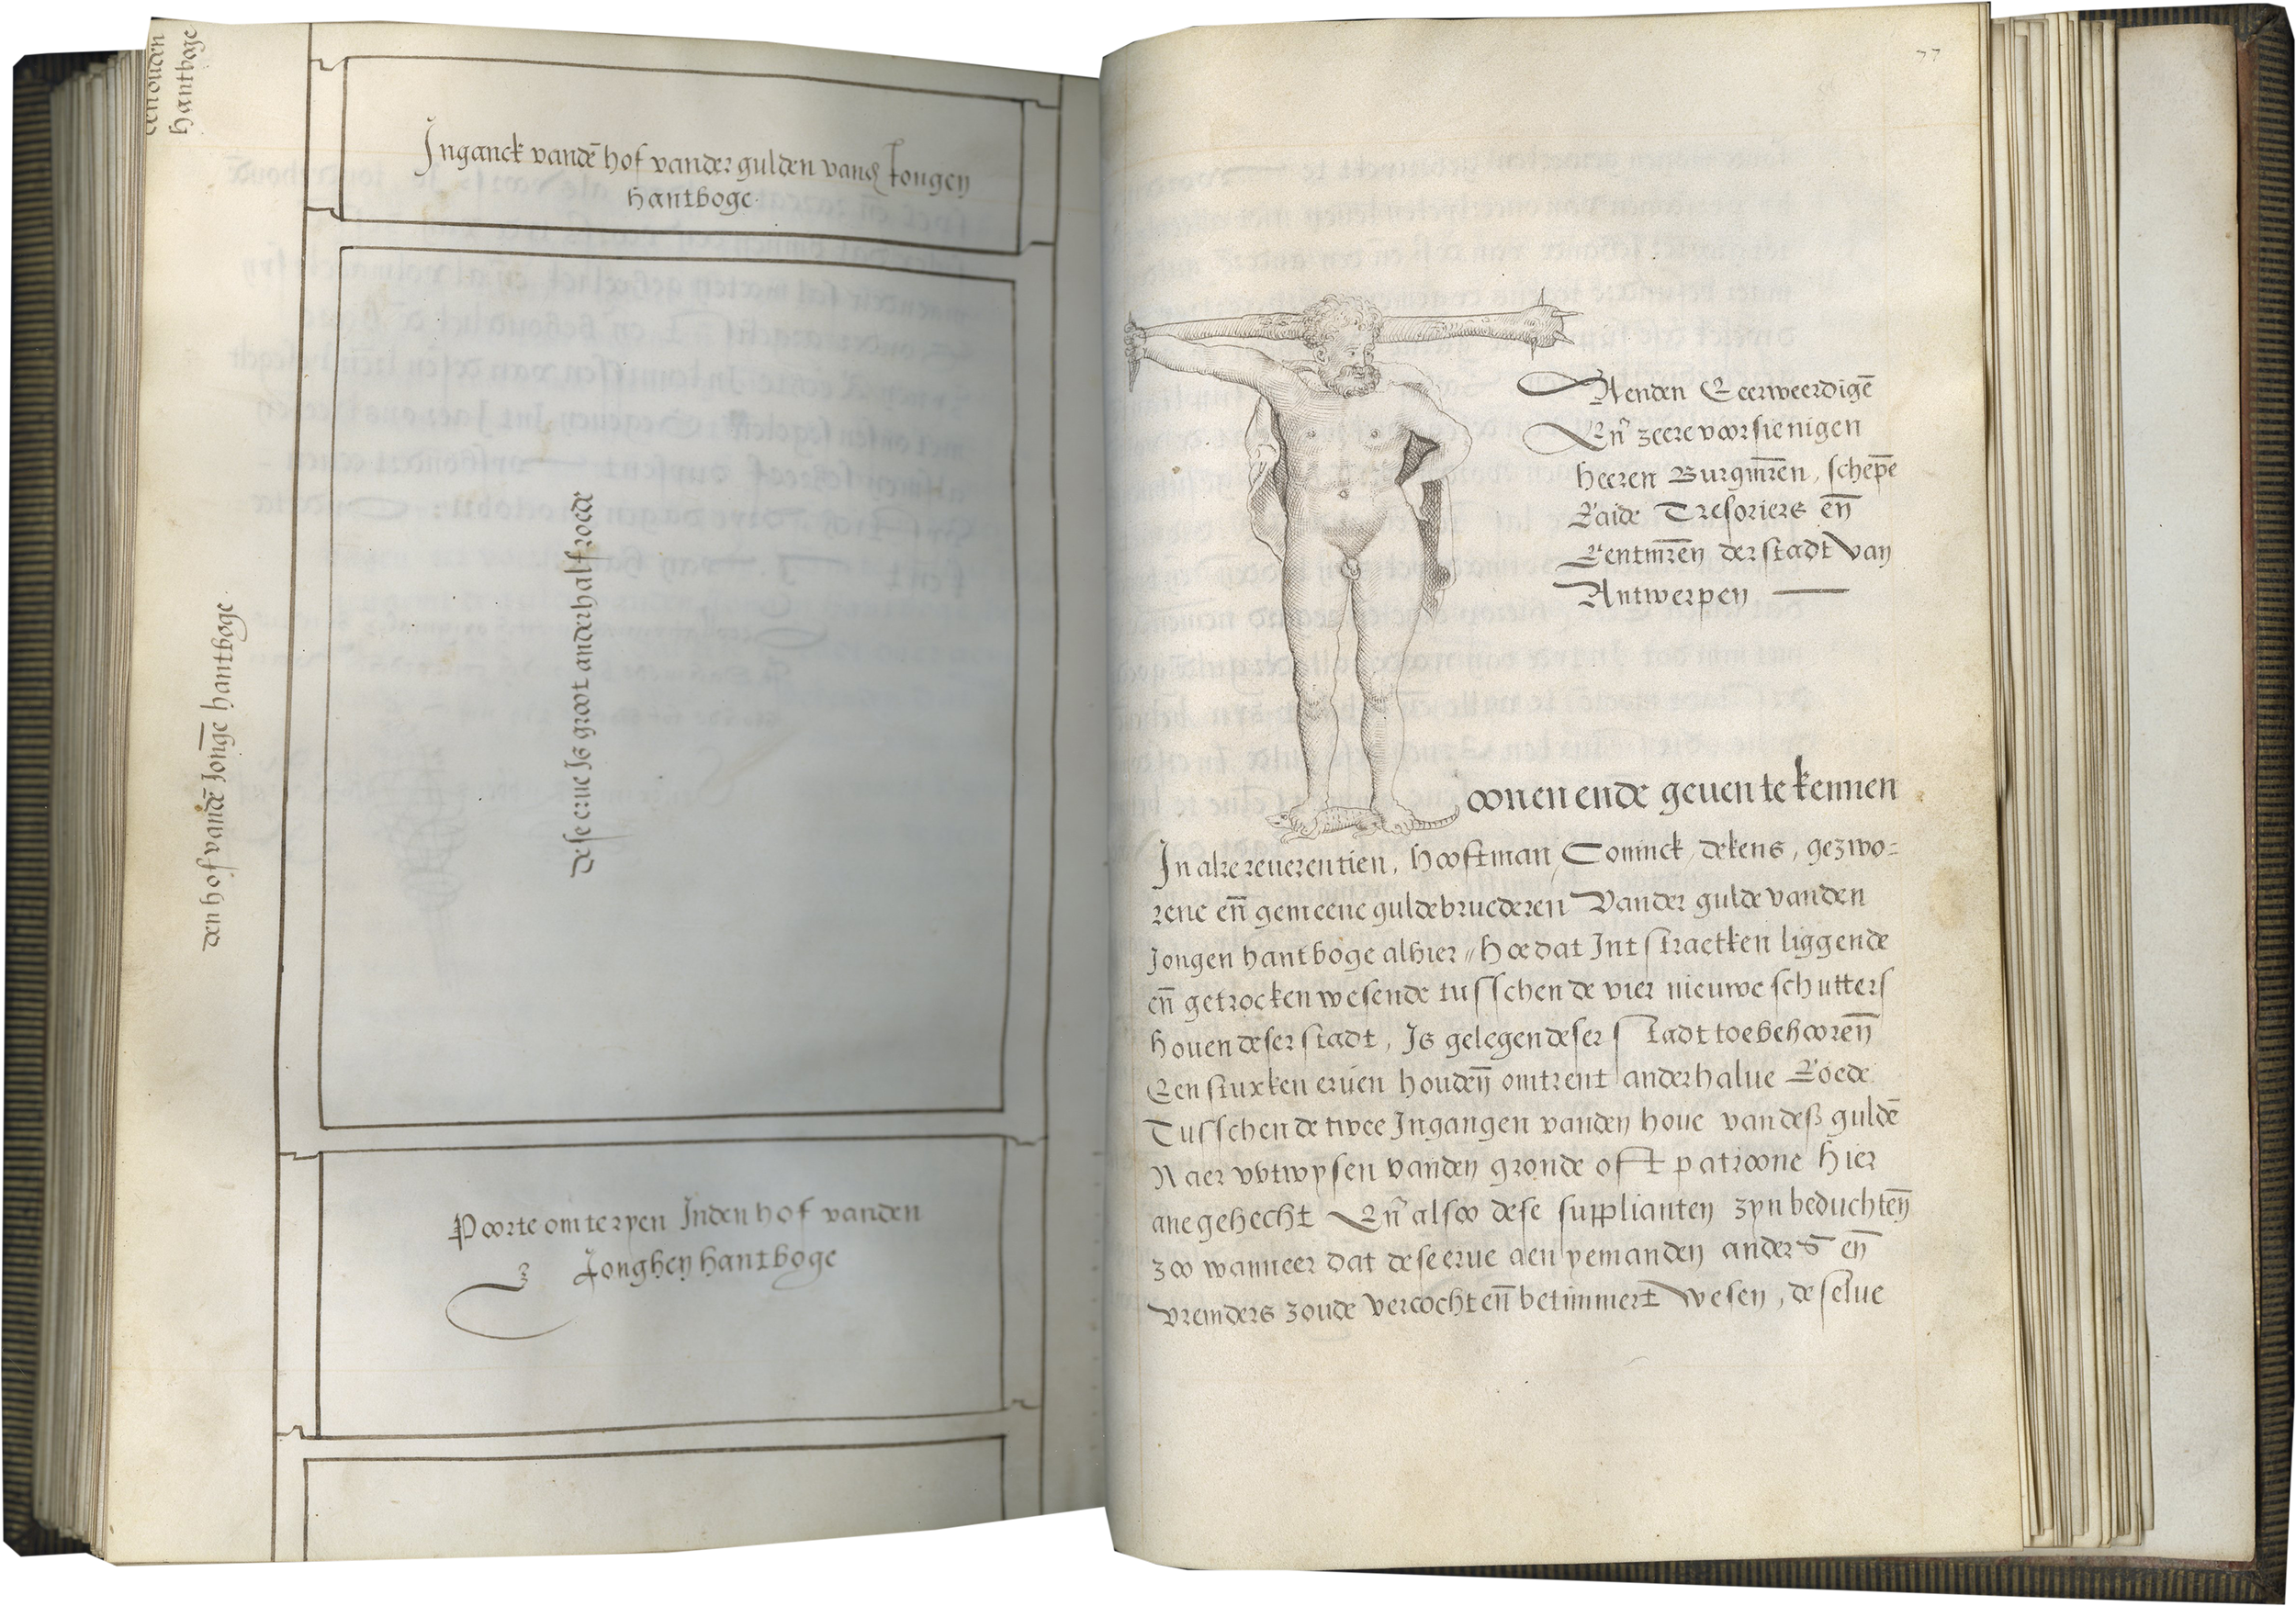 den ouden
hantboge
Inganck vandē hof vander gulden vandē Jongen
hantboge
den hof vandē Jonge hantboge
dese erue Is groot anderhalf roede
Poorte om te ryen Inden hof vanden
Jonghen hantboge
77
Aenden Eerweerdigē
Eñ zeere voorsienigen
heeren Burgmr̄en, schepē
Raide Tresoriers en̄
Rentmr̄en der stadt van
Antwerpen
oonen ende geuen te kennen
In alre reuerentien, hooftman, Coninck, dekens, gezwo=
rene en̄ gemeene guldebruederen Vander gulde vanden
Jongen hantboge alhier // hoe dat Int straetken liggende
en̄ getrocken wesende tusschen de vier nieuwe schutters
houen deser stadt, Is gelegen deser stadt toebehooren̄
Een stuxken eruen houden̄ omtrent anderhalue Roede
Tusschen de twee Ingangen vanden houe van desß guldē
Naer vvtwysen vanden gronde oft patroone hier
ane gehecht Eñ alsoo dese supplianten zyn beduchten̄
zoo wanneer dat dese erue aen yemanden anders en̄
vremders zoude vercocht en̄ betimmert Wesen, de selue